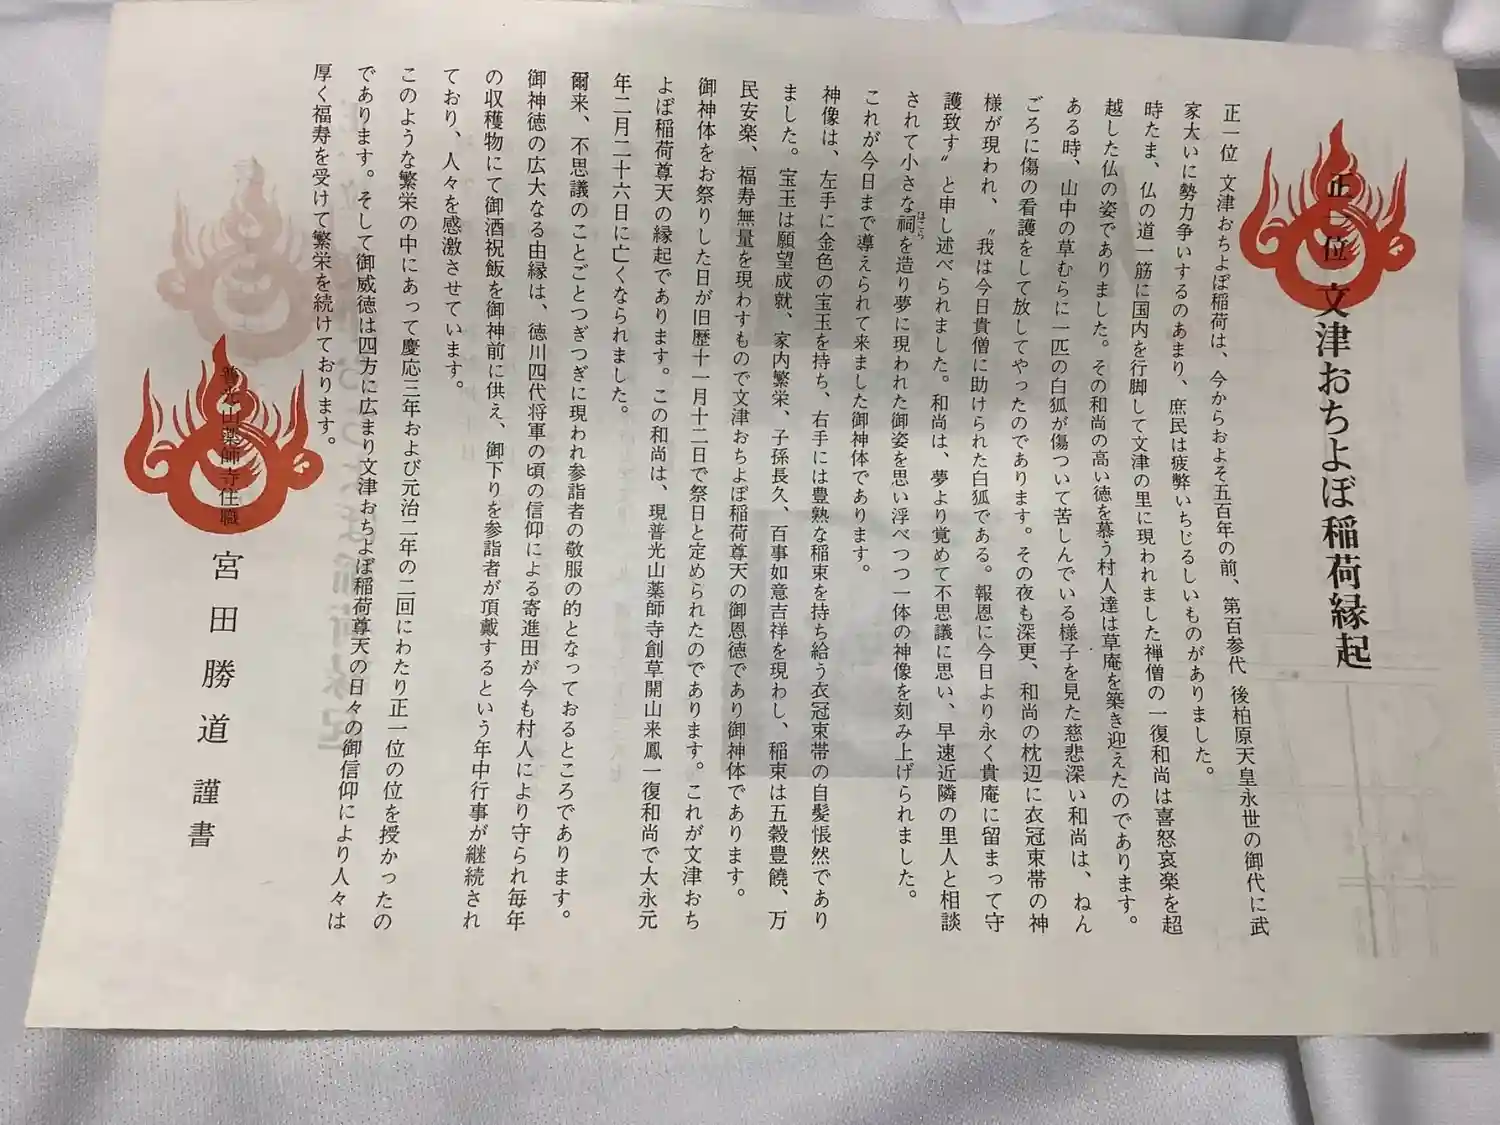 正一位 文津おちよぼ稲荷縁起
正一位 文津おちよぼ稲荷は、今からおよそ五百年の前、第百参代 後柏原天皇永世の御代に武
家大いに勢力争いするのあまり、庶民は疲弊いちじるしいものがありました。
時たま、仏の道一筋に国内を行脚して文津の里に現われました禅僧の一復和尚は喜怒哀楽を超
越した仏の姿でありました。その和尚の高い徳を慕う村人達は草庵を築き迎えたのであります。
ある時、山中の草むらに一匹の白狐が傷ついて苦しんでいる様子を見た慈悲深い和尚は、ねん
ごろに傷の看護をして放してやったのであります。その夜も深更、和尚の枕辺に衣冠束帯の神
様が現われ、〝我は今日貴僧に助けられた白狐である。報恩に今日より永く貴庵に留まって守
護致す〟と申し述べられました。和尚は、夢より覚めて不思議に思い、早速近隣の里人と相談
されて小さな祠ほこらを造り夢に現われた御姿を思い浮べつつ一体の神像を刻み上げられました。
これが今日まで導えられて来ました御神体であります。
神像は、左手に金色の宝玉を持ち、右手には豊熟な稲束を持ち給う衣冠束帯の自髪悵然であり
ました。宝玉は願望成就、家内繁栄、子孫長久、百事如意吉祥を現わし、稲束は五穀豊饒、万
民安楽、福寿無量を現わすもので文津おちよぼ稲荷尊天の御恩徳であり御神体であります。
御神体をお祭りした日が旧歴十一月十二日で祭日と定められたのであります。これが文津おち
よぼ稲荷尊天の縁起であります。この和尚は、現普光山薬師寺創草開山来鳳一復和尚で大永元
年二月二十六日に亡くなられました。
爾来、不思議のことごとつぎつぎに現われ参詣者の敬服の的となっておるところであります。
御神徳の広大なる由縁は、徳川四代将軍の頃の信仰による寄進田が今も村人により守られ毎年
の収穫物にて御酒祝飯を御神前に供え、御下りを参詣者が頂戴するという年中行事が継続され
ており、人々を感激させています。
このような繁栄の中にあって慶応三年および元治二年の二回にわたり正一位の位を授かったの
であります。そして御威徳は四方に広まり文津おちよぼ稲荷尊天の日々の御信仰により人々は
厚く福寿を受けて繁栄を続けております。
普光山薬師寺住職 宮田勝道 謹書